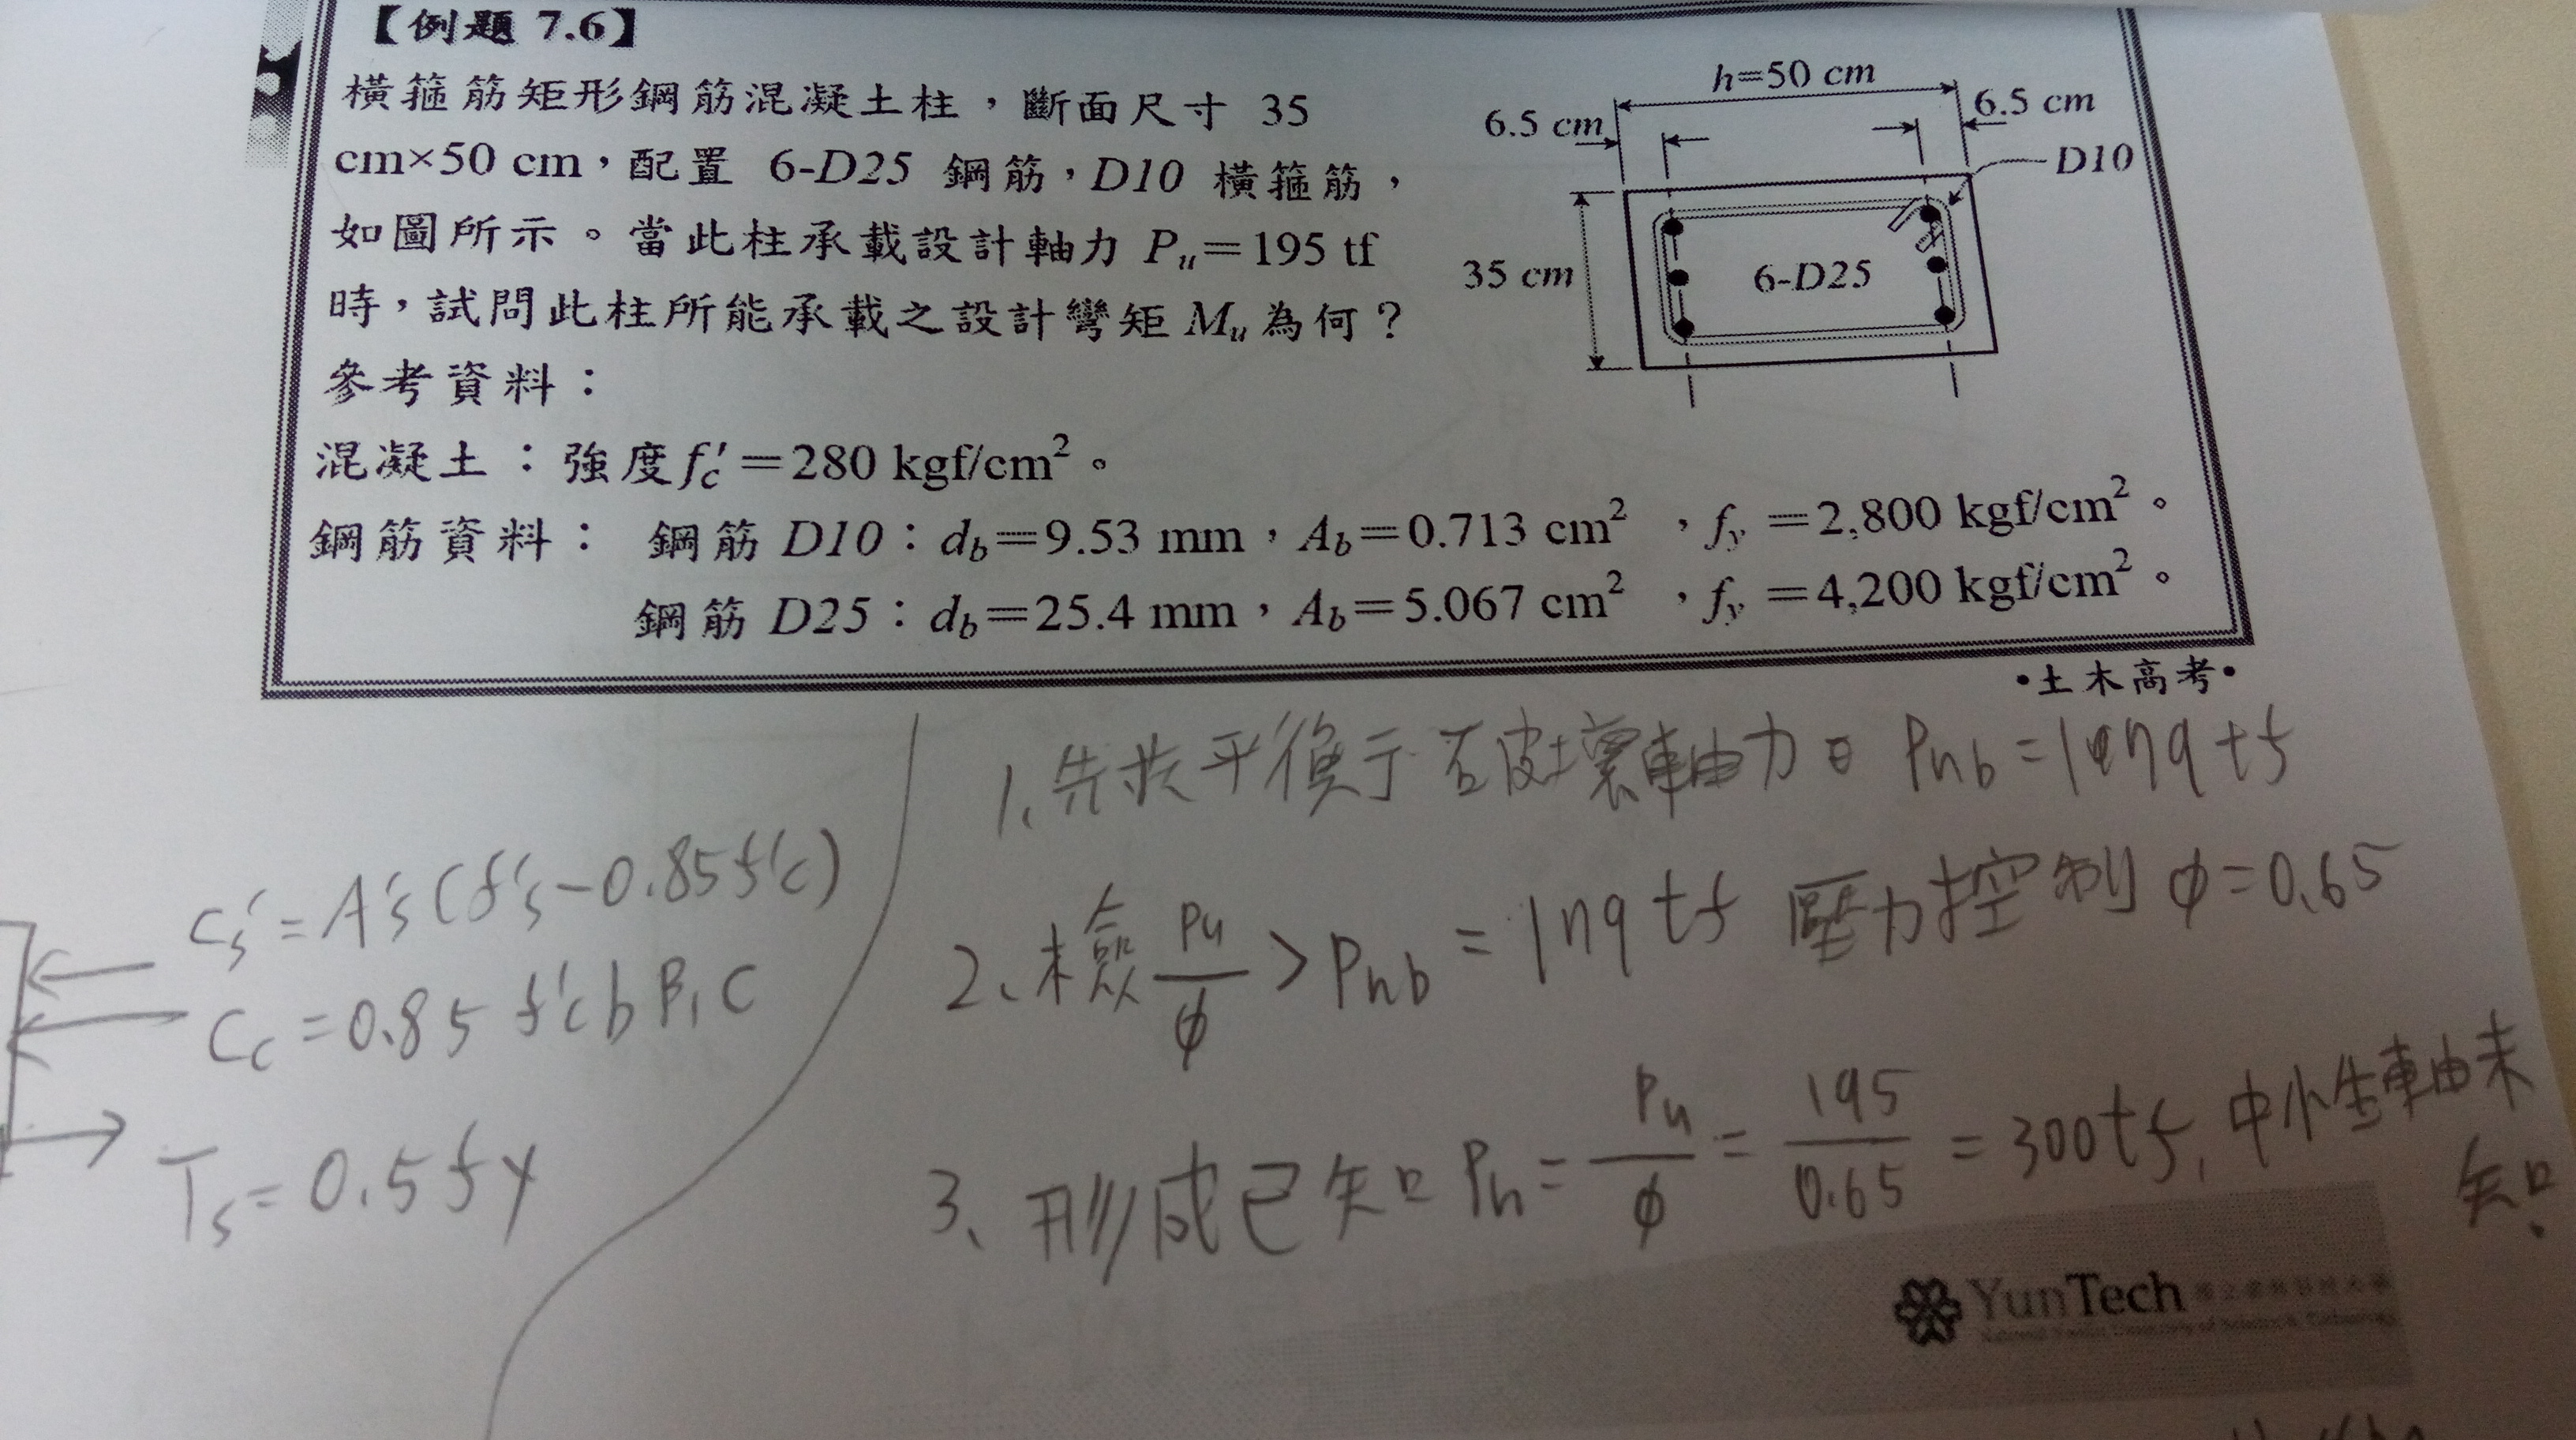 【例題 7.6】
橫箍筋矩形鋼筋混凝土柱，斷面尺寸 35
cm×50 cm，配置 6-D25 鋼筋，D10 橫箍筋，
如圖所示。當此柱承載設計軸力 Pu＝195 tf
時，試問此柱所能承載之設計彎矩 Mu 為何？
參考資料：
混凝土：強度 fc′＝280 kgf/cm²。
鋼筋資料： 鋼筋 D10：db＝9.53 mm，Ab＝0.713 cm²，fy＝2,800 kgf/cm²。
鋼筋 D25：db＝25.4 mm，Ab＝5.067 cm²，fy＝4,200 kgf/cm²。
h=50 cm
6.5 cm
6.5 cm
D10
35 cm
6-D25
•土木高考•
1、先求平衡 破壞軸力
2、檢 Pu/φ > Pnb = 179 tf 壓力控制 φ=0.65
3、形成已知 Pn = Pu/φ = 195/0.65 = 300 tf, 中性軸未
知.
Cs′ = A′s (f′s - 0.85 f′c)
Cc = 0.85 f′c b β1 C
Ts = 0.5 fy
YunTech